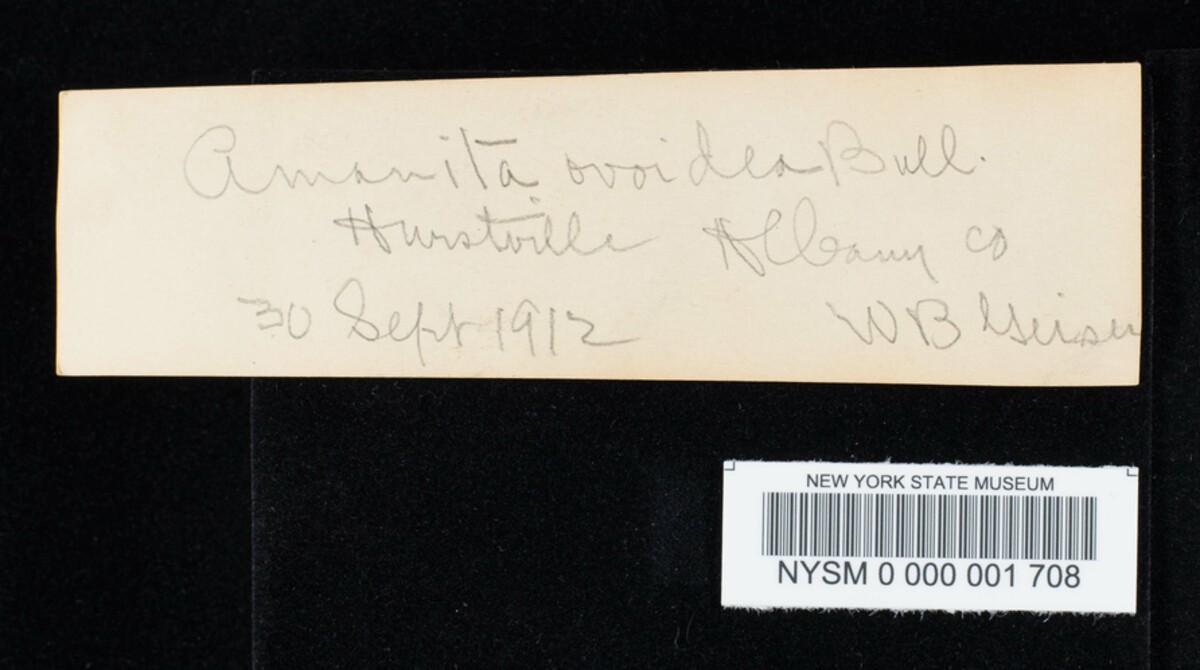 Amanita ovoidea Bull.
Hurstville Albany co
30 Sept 1912 W B
NEW YORK STATE MUSEUM
NYSM 0 000 001 708